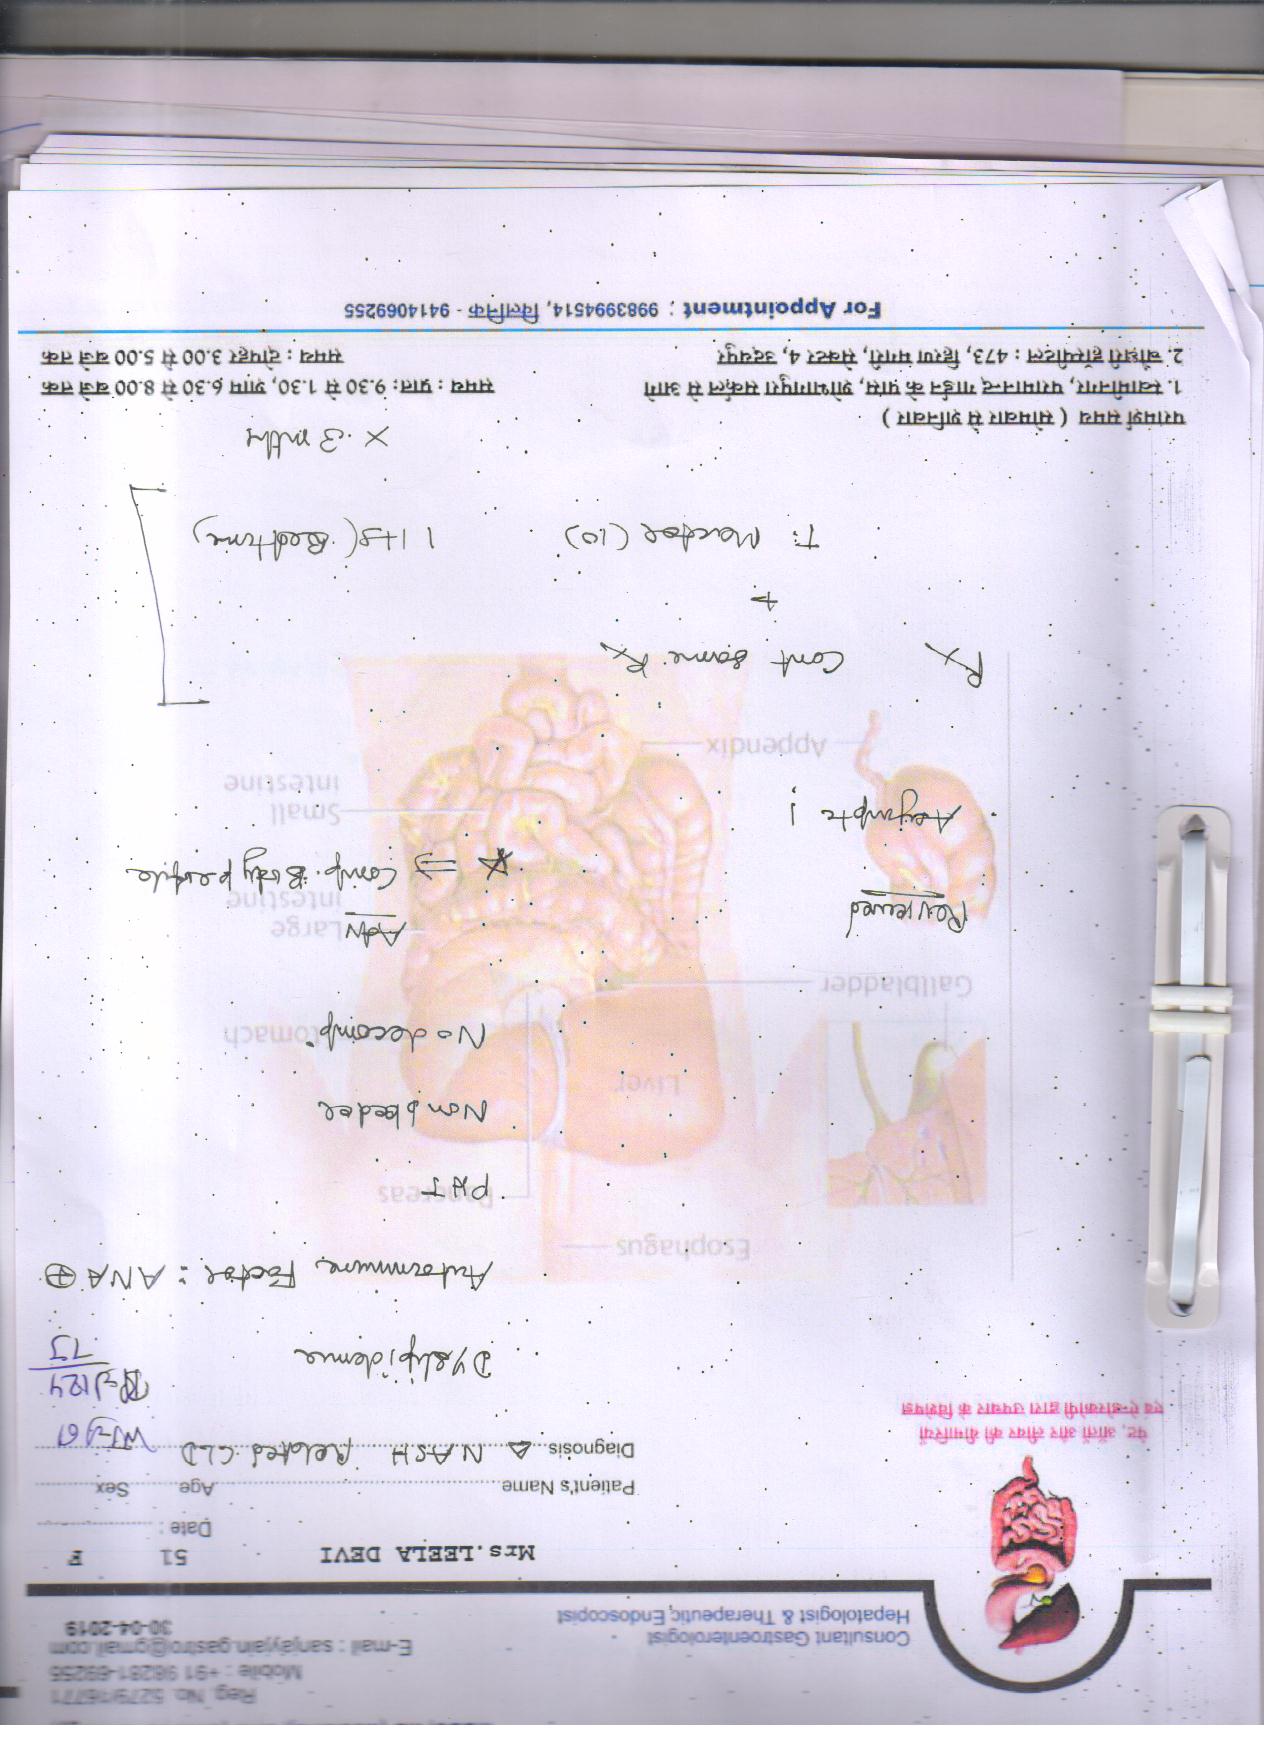 Reg. No. 5279/16771
Mobile : +91 98281-69255
E-mail : sanjayjain.gastro@gmail.com
30-04-2019
Consultant Gastroenterologist
Hepatologist & Therapeutic Endoscopist
Mrs. LEELA DEVI 51 F
Date :
Patient's Name Age Sex
Diagnosis Δ NASH Related CLD
पेट, आँतों और लीवर की बीमारियों
एवं ऐन्डोस्कोपी द्वारा उपचार के विशेषज्ञ
Dyslipidemia
Autoimmune Factor : ANA ⊕
Esophagus
PHT
Pancreas
Non bleeder
Liver
No decomp.
Stomach
Gallbladder
Reviewed
Adv
Large
intestine
⇒ Comp. Body profile
Asympt
Small
intestine
Appendix
Rx Cont same Rx
+
1 HS (Bedtime)
x 3 mths
परामर्श समय ( सोमवार से शनिवार )
समय : प्रातः 9.30 से 1.30, शाम 6.30 से 8.00 बजे तक
2. चौधरी हॉस्पीटल : 473, हिरण मगरी, सेक्टर 4, उदयपुर समय : दोपहर 3.00 से 5.00 बजे तक
For Appointment : 9983994514, क्लिनिक - 9414069255